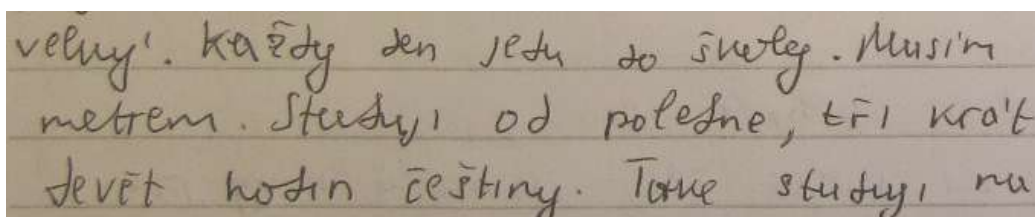 velmy'. Každy den jedu do školy. Musim
metrem. Studuji od poledne, tři krát
devět hodin češtiny. Take studuji na